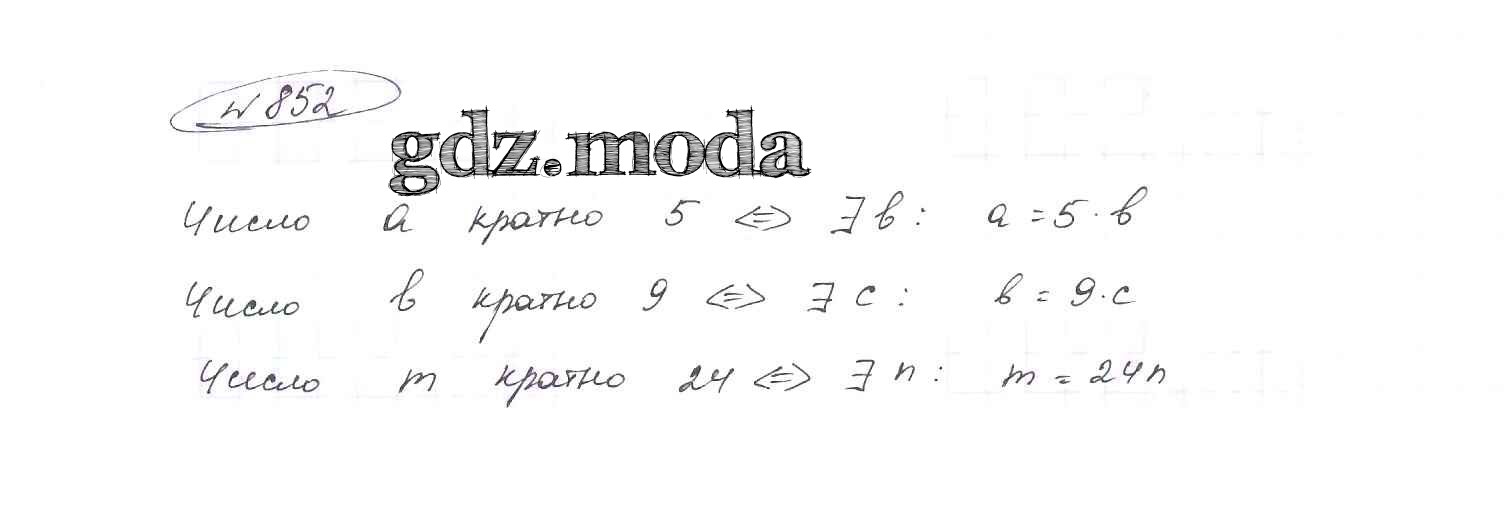 № 852
gdz.moda
Число a кратно 5 <=> ∃ b : a = 5 · b
Число b кратно 9 <=> ∃ c : b = 9 · c
Число m кратно 24 <=> ∃ n : m = 24n